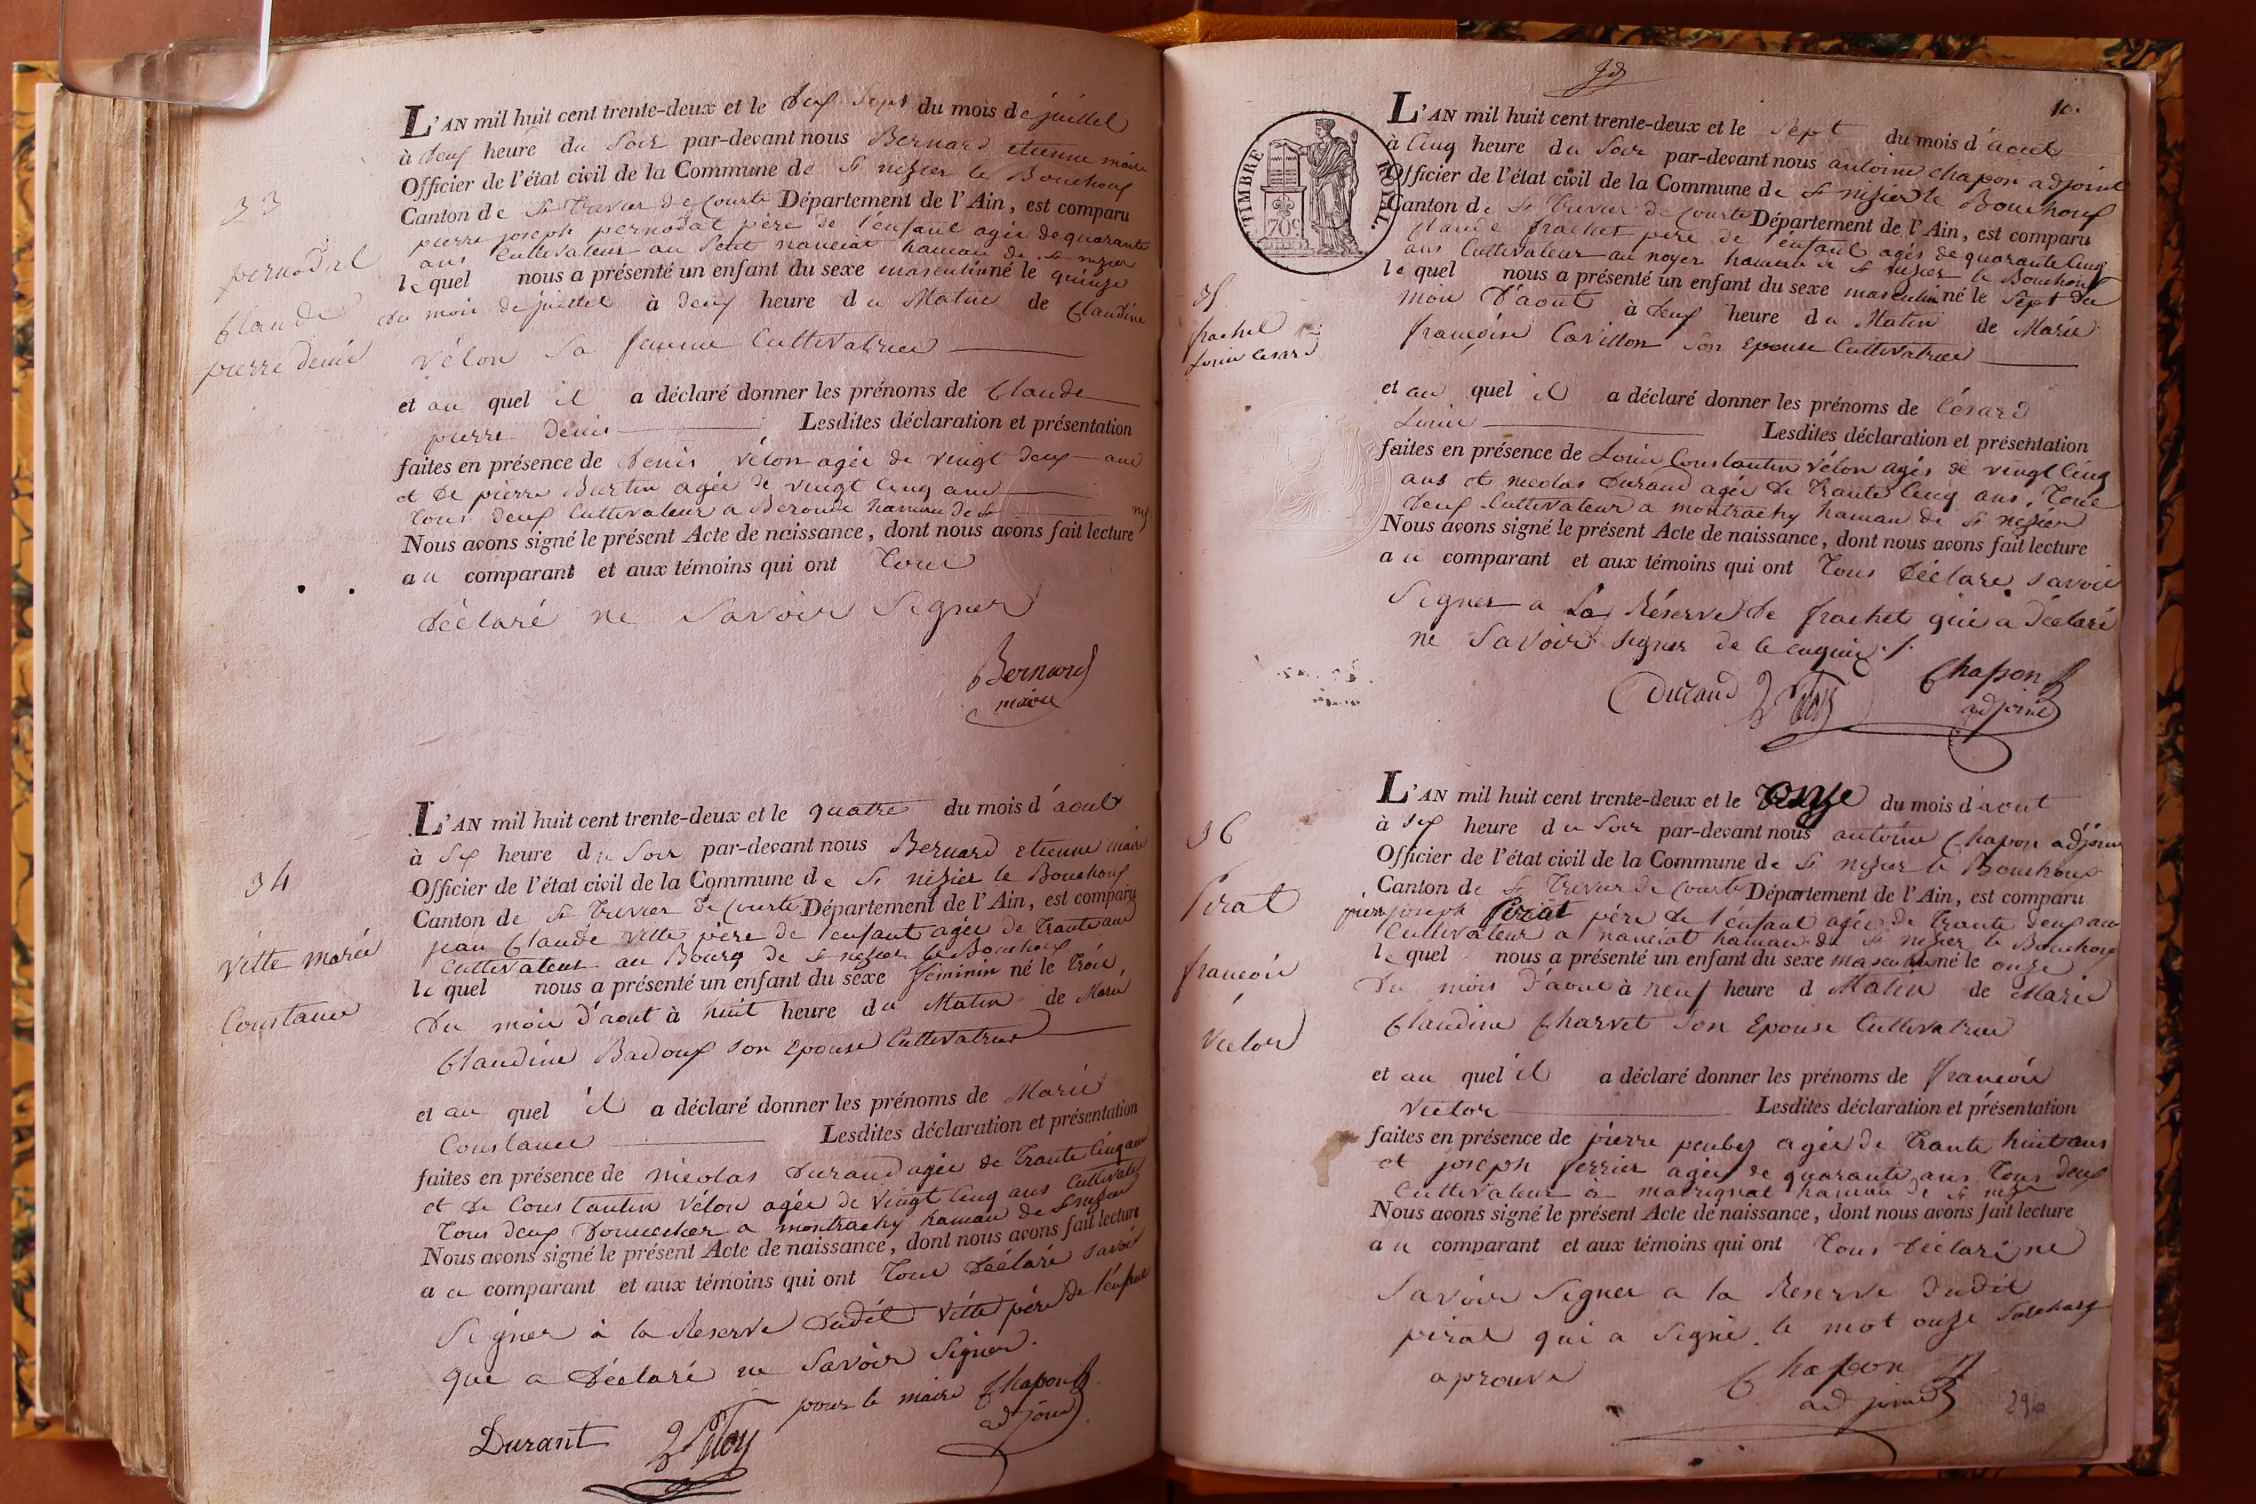 33
pernodat
Claude
pierre denis
L'AN mil huit cent trente-deux et le dix sept du mois de juillet
à deux heure du Soir par-devant nous Bernard etienne maire
Officier de l'état civil de la Commune de St nizier le Bouchoux
Canton de St Trivier de Courte Département de l'Ain, est comparu
pierre joseph pernodat père de l'enfant agée de quarante
ans Cultivateur au Petit nanciat hameau de St nizier
le quel nous a présenté un enfant du sexe masculin né le quinze
du mois de juillet à deux heure du Matin de Claudine
Vélon Sa femme Cultivatrice
et au quel il a déclaré donner les prénoms de Claude
pierre denis Lesdites déclaration et présentation
faites en présence de denis Vélon agée de vingt deux ans
et de pierre Burtin agée de vingt Cinq ans
Tous deux Cultivateur a hameau de St
Nous avons signé le présent Acte de naissance, dont nous avons fait lecture
au comparant et aux témoins qui ont Tous
déclaré ne Savoir Signer
Bernard
maire
34
Vitte marie
Constance
L'AN mil huit cent trente-deux et le quatre du mois d'aout
à Six heure du Soir par-devant nous Bernard etienne maire
Officier de l'état civil de la Commune de St nizier le Bouchoux
Canton de St Trivier de Courte Département de l'Ain, est comparu
jean Claude Vitte père de l'enfant agée de Trante ans
Cultivateur au Bourg de St nizier le Bouchoux
le quel nous a présenté un enfant du sexe féminin né le Trois
Du mois d'aout à huit heure du Matin de Marie
Claudine Badoux son Epouse Cultivatrice
et au quel il a déclaré donner les prénoms de Marie
Constance Lesdites déclaration et présentation
faites en présence de nicolas Durand agée de Trante Cinq ans
et de Constantin Vélon agée de Vingt Cinq ans Cultivateur
Tous deux a montrachy hameau de St nizier
Nous avons signé le présent Acte de naissance, dont nous avons fait lecture
au comparant et aux témoins qui ont Tous déclaré Savoir
Signer à la Reserve dudit Vitte père de l'enfant
qui a déclaré ne Savoir Signer.
pour le maire Chapon
adjoint
Durant
10.
TIMBRE ROYAL.
70c
35
frachet
Louis Cesard
L'AN mil huit cent trente-deux et le Sept du mois d'aout
à Cinq heure du Soir par-devant nous antoine Chapon adjoint
Officier de l'état civil de la Commune de St nizier le Bouchoux
Canton de St Trivier de Courte Département de l'Ain, est comparu
Claude frachet père de l'enfant agés de quarante Cinq
ans Cultivateur au noyer hameau de St nizier le Bouchoux
le quel nous a présenté un enfant du sexe masculin né le Sept du
mois d'aout à deux heure du Matin de Marie
françoise Cavillon Son Epouse Cultivatrice
et au quel il a déclaré donner les prénoms de Césard
Louis Lesdites déclaration et présentation
faites en présence de Louis Constantin Vélon agés de vingt Cinq
ans et nicolas Durand agée de Trante Cinq ans Tous
deux Cultivateur a montrachy hameau de St nizier
Nous avons signé le présent Acte de naissance, dont nous avons fait lecture
au comparant et aux témoins qui ont Tous déclaré savoir
Signer a La Réserve de frachet qui a déclaré
ne Savoir signer de le enquis./.
Durand
Chapon
adjoint
36
Pirat
françois
Victor
L'AN mil huit cent trente-deux et le onze du mois d'aout
à six heure du Soir par-devant nous antoine Chapon adjoint
Officier de l'état civil de la Commune de St nizier le Bouchoux
Canton de St Trivier de Courte Département de l'Ain, est comparu
pierre joseph Pirat père de l'enfant agée de Trante deux ans
Cultivateur a nanciat hameau de St nizier le Bouchoux
le quel nous a présenté un enfant du sexe masculin né le onze
Du mois d'aout à neuf heure d Matin de Marie
Claudine Charvet Son Epouse Cultivatrice
et au quel il a déclaré donner les prénoms de françois
Victor Lesdites déclaration et présentation
faites en présence de pierre agée de Trante huit ans
et joseph ferrier agée de quarante ans Tous deux
Cultivateur à marrignat hameau de St nizier
Nous avons signé le présent Acte de naissance, dont nous avons fait lecture
au comparant et aux témoins qui ont Tous déclaré ne
Savoir Signer a la Reserve dudit
pirat qui a Signé. le mot onze
aprouvé
Chapon
adjoint
296